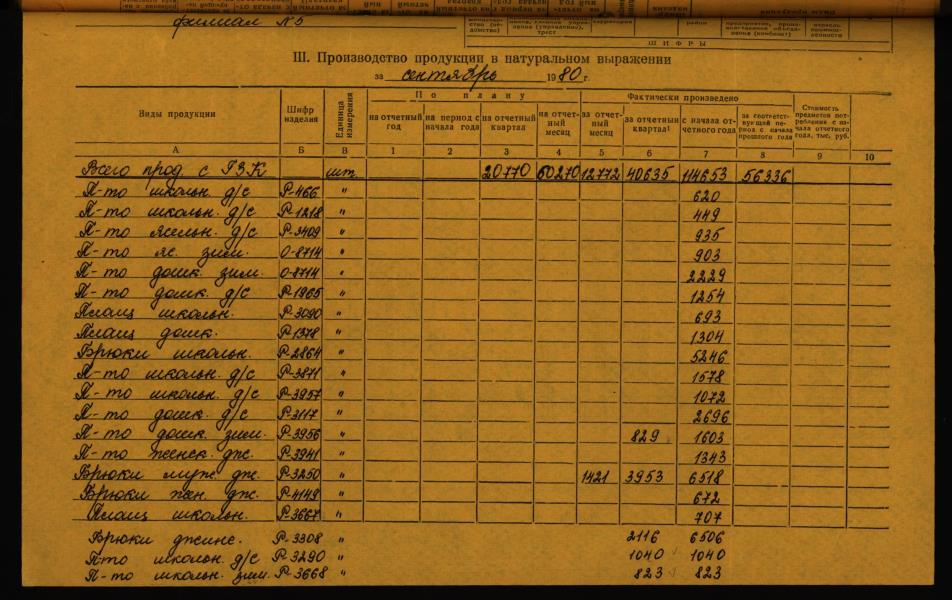 филиал N5
ШИФРЫ
III. Производство продукции в натуральном выражении
за сентябрь 1980 г.
Виды продукции | Шифр изделия | Единица измерения | По плану | Фактически произведено | Стоимость предметов потребления с начала отчетного года, тыс. руб.
на отчетный год | на период с начала года | на отчетный квартал | на отчетный месяц | за отчетный месяц | за отчетный квартал | с начала отчетного года | за соответствующий период с начала прошлого года
А | Б | В | 1 | 2 | 3 | 4 | 5 | 6 | 7 | 8 | 9 | 10
Всего прод. с ГЗК шт. 20770 60270 12772 40635 114653 56336
П-то школьн. д/с Р-466 " 620
П-то школьн. д/с Р-1218 " 449
П-то ясельн. д/с Р-3409 " 935
П-то яс. зим. О-8714 " 903
П-то дошк. зим. О-8714 " 2229
П-то дошк. д/с Р-1965 " 1254
Плащ школьн. Р-3090 " 693
Плащ дошк. Р-1378 " 1304
Брюки школьн. Р-2864 " 5246
П-то школьн. д/с Р-3871 " 1578
П-то школьн. д/с Р-3957 " 1072
П-то дошк. д/с Р-3117 " 2696
П-то дошк. зим. Р-3956 " 829 1603
П-то женск. дж. Р-3941 " 1343
Брюки муж. дж. Р-3250 " 1421 3953 6518
Брюки жен. дж. Р-4149 " 672
Плащ школьн. Р-3667 " 707
Брюки джинс. Р-3308 " 2116 6506
П-то школьн. д/с Р-3290 " 1040 1040
П-то школьн. зим. Р-3668 " 823 823